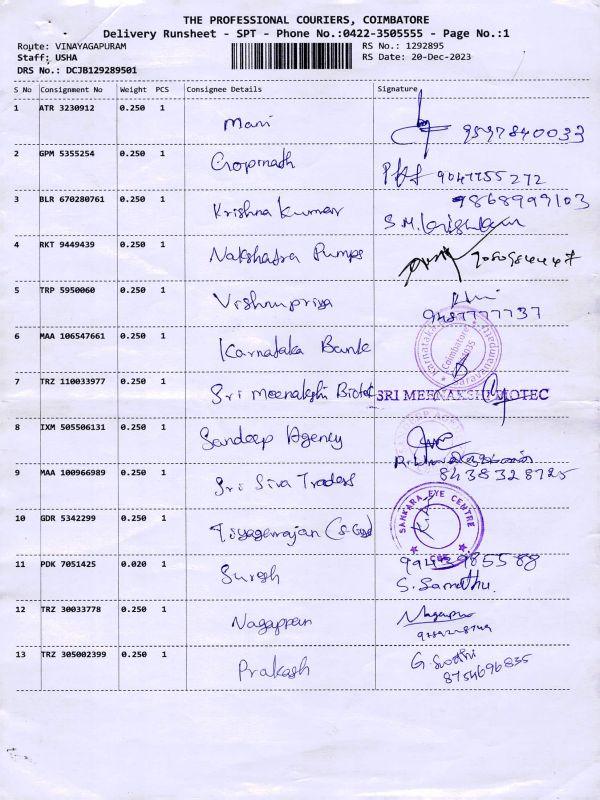 THE PROFESSIONAL COURIERS, COIMBATORE
Delivery Runsheet - SPT - Phone No.:0422-3505555 - Page No.:1
Route: VINAYAGAPURAM RS No.: 1292895
Staff: USHA RS Date: 20-Dec-2023
DRS No.: DCJB129289501
S No Consignment No Weight PCS Consignee Details Signature
1 ATR 3230912 0.250 1 Mani 9597840033
2 GPM 5355254 0.250 1 Gopinath 9047755272
3 BLR 670280761 0.250 1 Krishna Kumar 9868999103
S.M.
4 RKT 9449439 0.250 1 Nakshatra Pumps
5 TRP 5950060 0.250 1 Vishnupriya
9487777737
6 MAA 106547661 0.250 1 Karnataka Bank Karnataka Coimbatore Saravanam
7 TRZ 110033977 0.250 1 Sri Meenakshi Biotec SRI MEENAKSHI BIOTEC
8 IXM 505506131 0.250 1 Sandeep Agency
9 MAA 100966989 0.250 1 Sri Siva Traders 8438328725
10 GDR 5342299 0.250 1 SANKARA EYE CENTRE CBE
11 PDK 7051425 0.020 1 Suresh 9943985588
S.
12 TRZ 30033778 0.250 1 Nagappan
13 TRZ 305002399 0.250 1 Prakash G.
8754696835